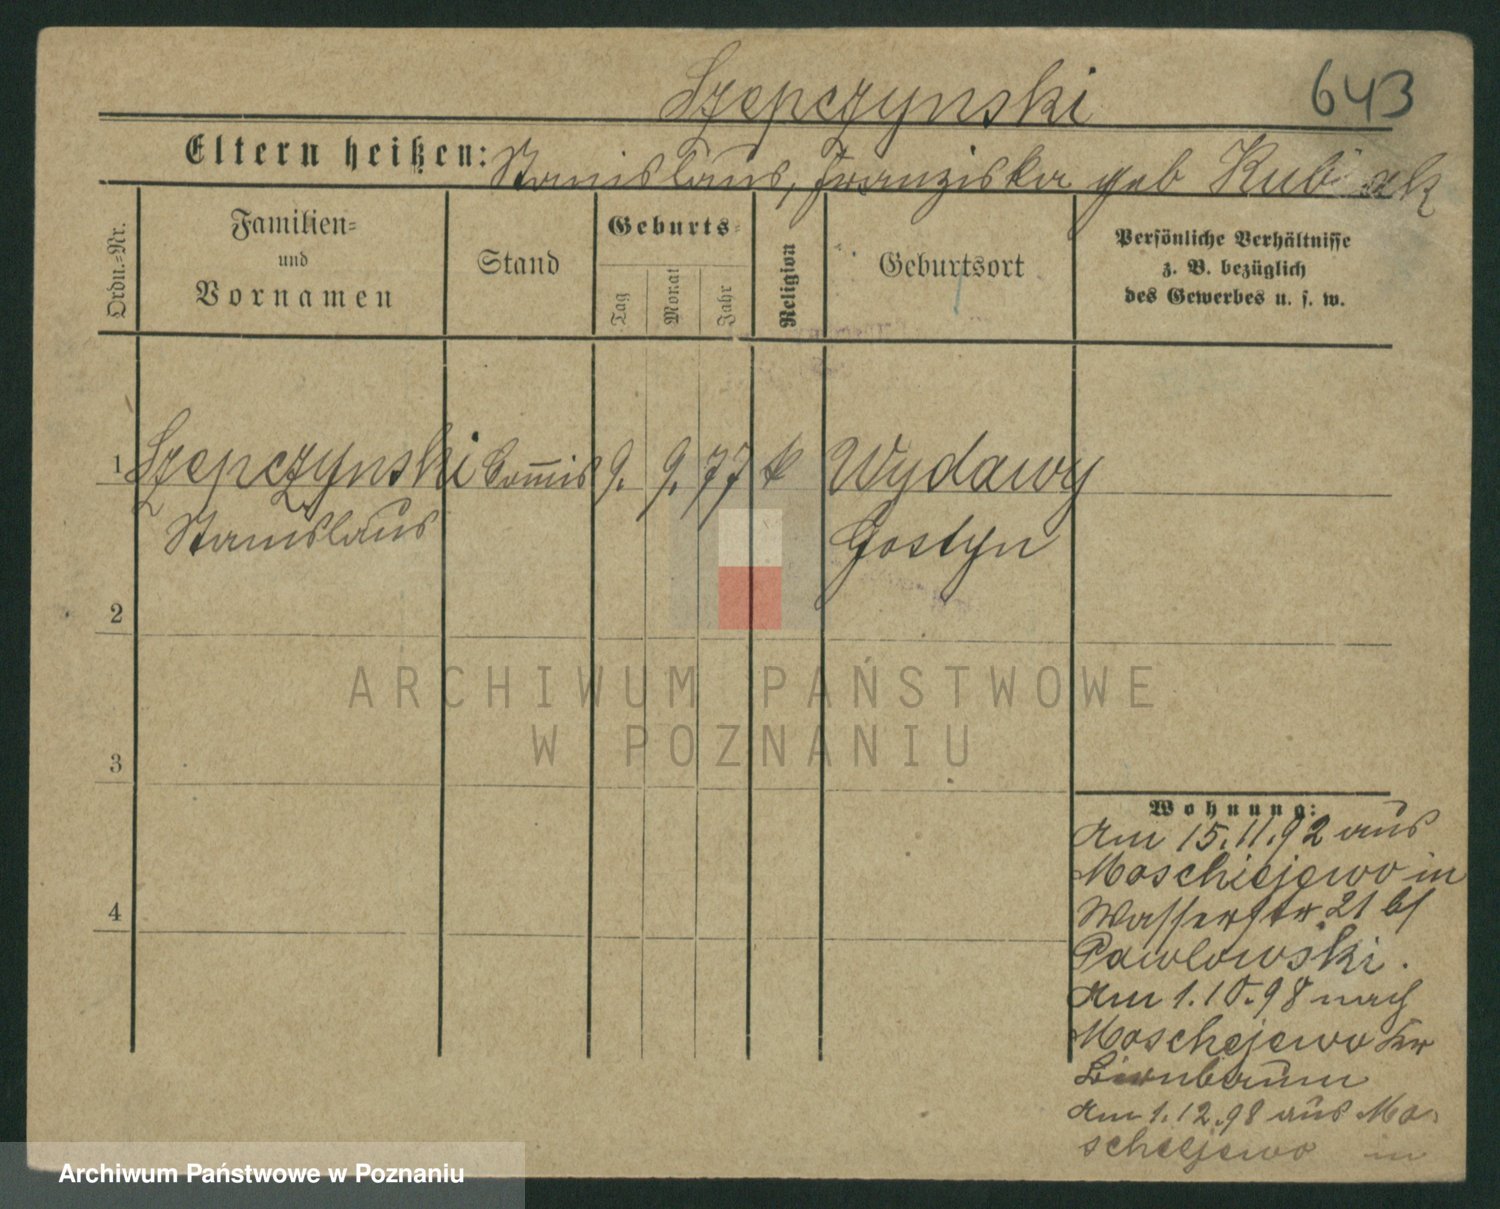 Szepczynski
643
Eltern heißen: Stanislaus, Franziska geb Kubiak
Ordn.-Nr.
Familien-
und
Vornamen
Stand
Geburts-
Tag
Monat
Jahr
Religion
Geburtsort
Persönliche Verhältnisse
z. B. bezüglich
des Gewerbes u. s. w.
1 Szepczynski Com̅is 9. 9. 77 k Wydawy
Stanislaus Gostyn
2
ARCHIWUM PAŃSTWOWE
W POZNANIU
3
Wohnung:
Am 15.11.92 aus
Moschiejewo in
4
Wasserstr. 21 b/
Pawlowski.
Am 1.10.98 nach
Moschejewo Kr
Birnbaum
Am 1.12.98 aus Mo-
schejewo in
Archiwum Państwowe w Poznaniu